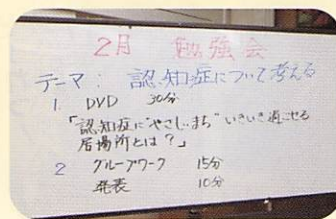 2月 勉強会
テーマ: 認知症について考える
1. DVD 30分
「認知症に"やさしいまち"いきいき過ごせる
居場所とは?」
2 グループワーク 15分
発表 10分